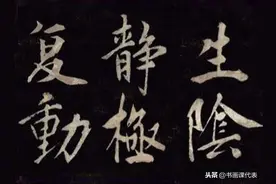 生陰
静極
复動
头条 @书画课代表